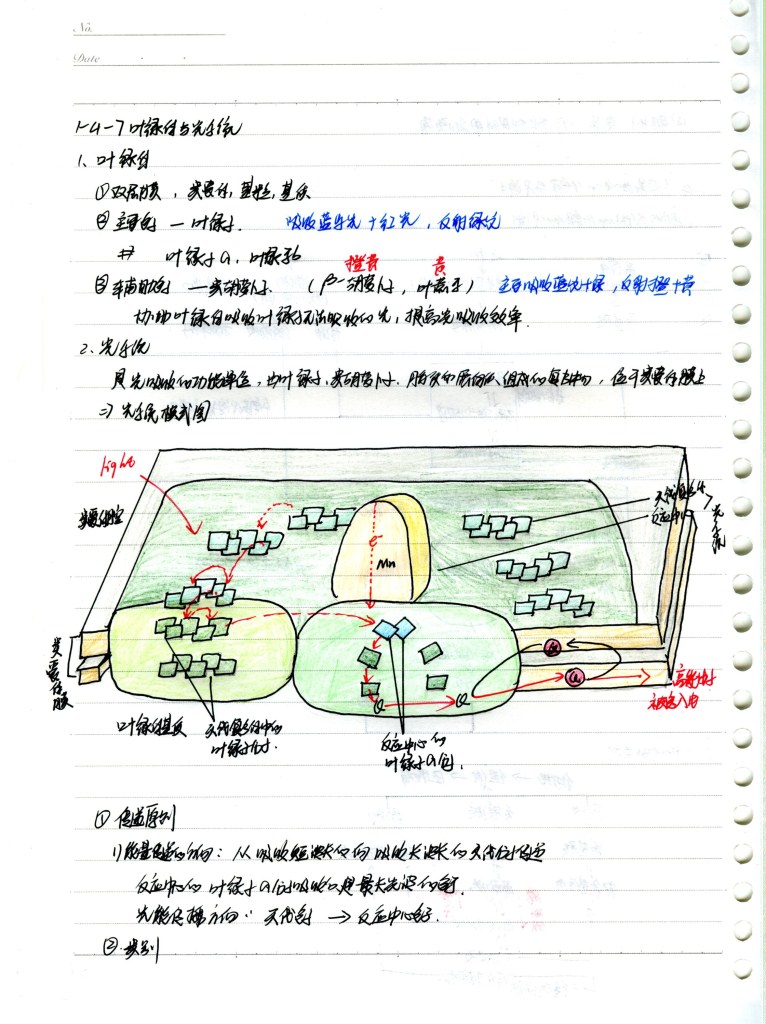 No.
Date
1-4-7 叶绿体与光系统
1、叶绿体
①双层膜，类囊体，基粒，基质
②主色素 — 叶绿素. 吸收蓝紫光+红光，反射绿光
叶绿素a，叶绿素b
橙黄 黄
③辅助色素 — 类胡萝卜素 (β-胡萝卜素，叶黄素) 主要吸收蓝光+绿，反射橙+黄
协助叶绿体吸收叶绿素无法吸收的光，提高光吸收效率.
2、光系统
是光吸收的功能单位，由叶绿素、类胡萝卜素、脂质和蛋白质组成的复合物，位于类囊体膜上
⇒ 光系统模式图
light
类囊体腔
天线复合体
反应中心
光系统
e⁻
Mn
类囊体膜
Q
Q
Q
Q
高能电子
叶绿体基质
天线复合体中的
叶绿素分子
反应中心的
叶绿素a分子
① 传递原则
1)能量传递的方向：从吸收短波长的向吸收长波长的天线色素传递
反应中心的叶绿素a分子吸收的是最大光波的
光能传播方向：天线色素 → 反应中心色素.
② 类别